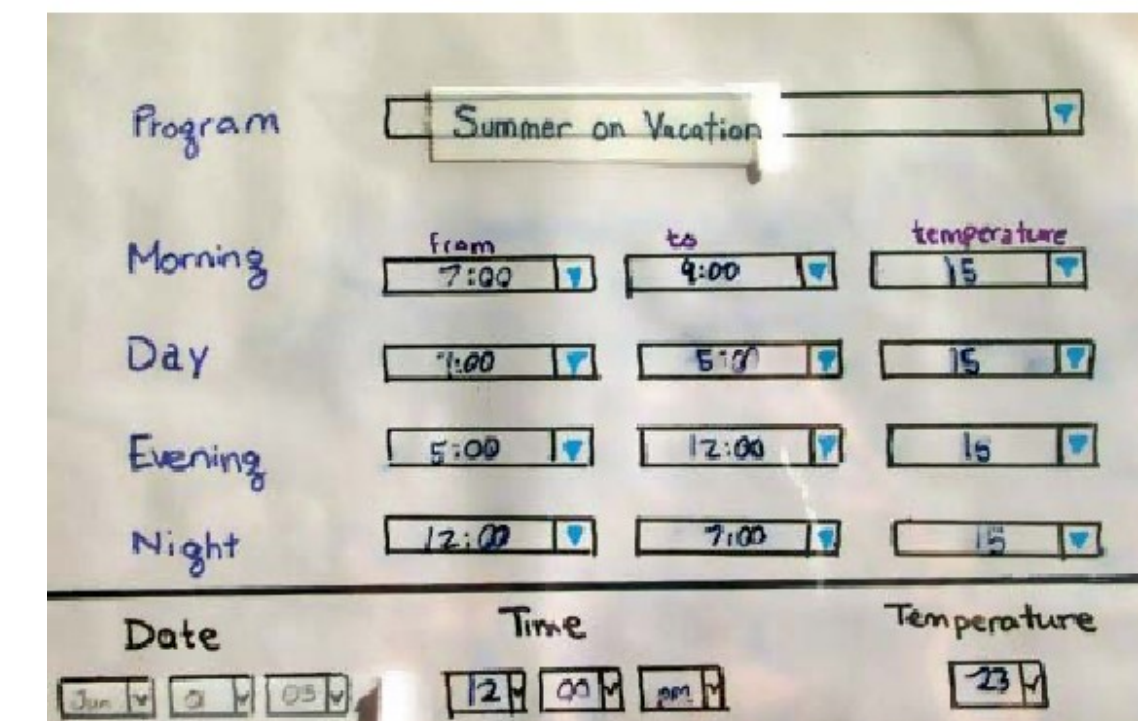 Program Summer on Vacation
from to temperature
Morning 7:00 9:00 15
Day :00 5:00 15
Evening 5:00 12:00 15
Night 12:00 7:00 15
Date Time Temperature
Jun 03 12 00 pm 23